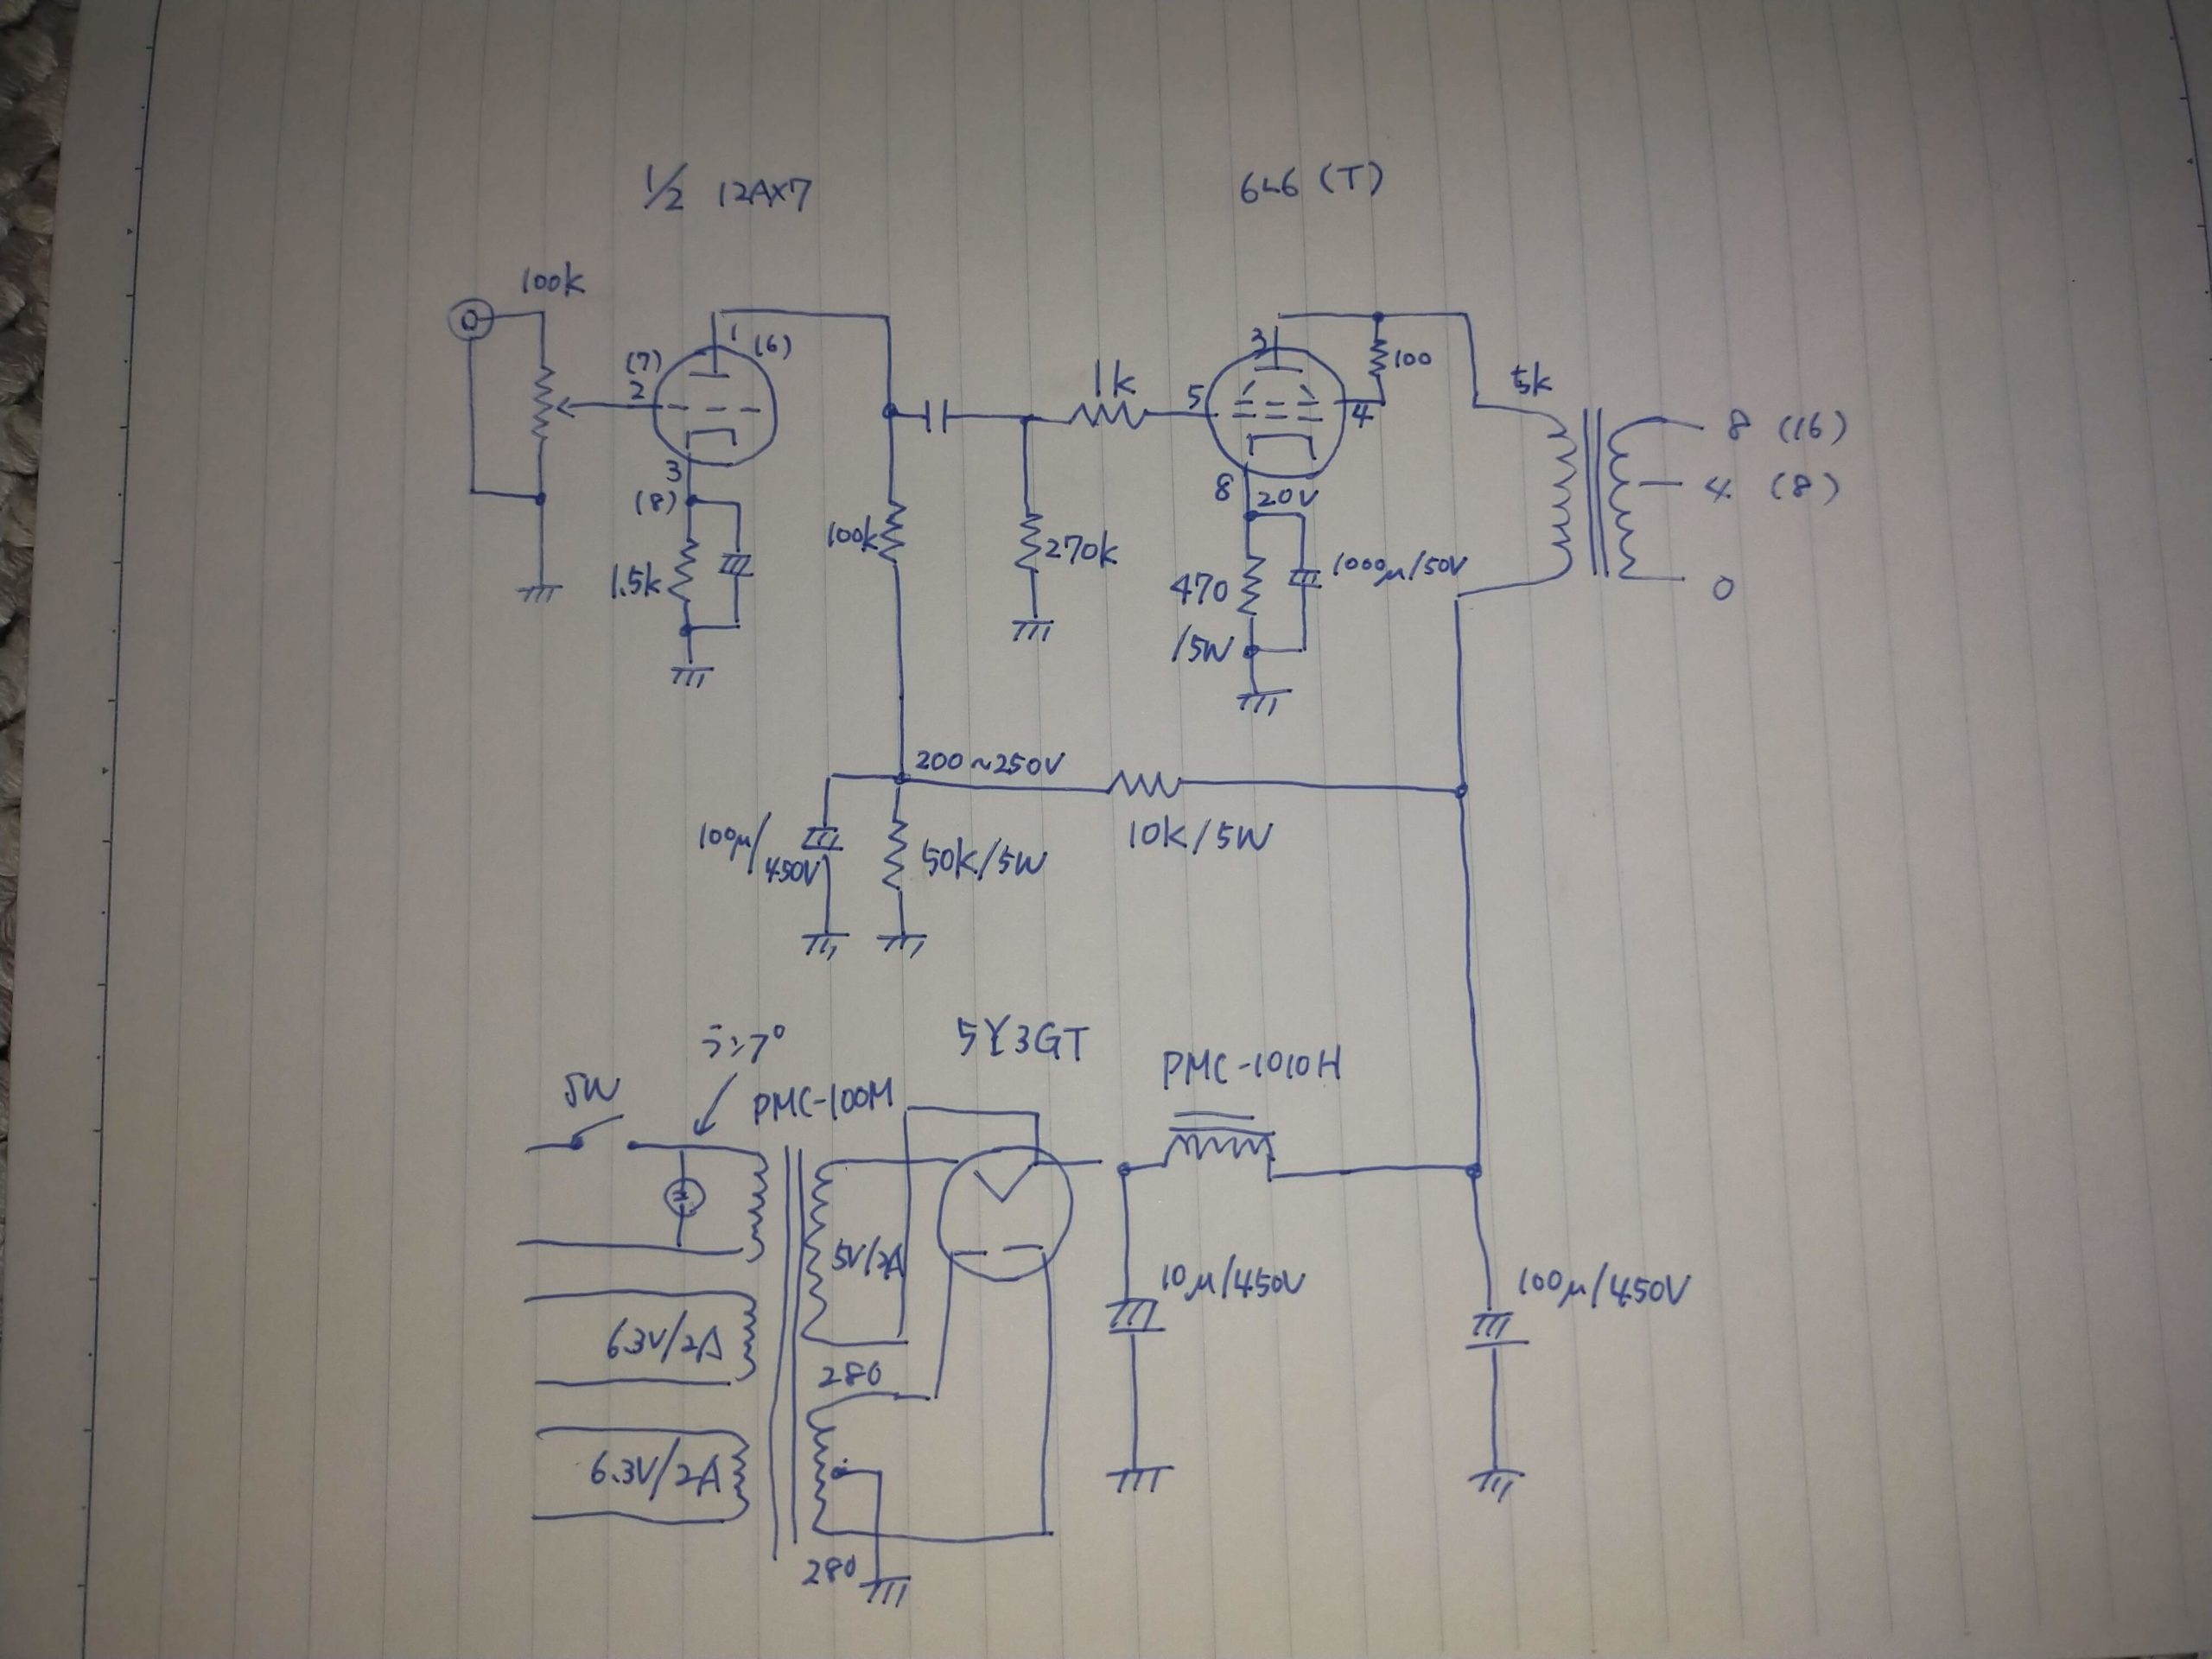 1/2 12AX7
6L6 (T)
100k
(7)
2
1
(6)
3
(8)
1.5k
100k
1k
270k
5
3
4
100
8
20V
470
/5W
1000μ/50V
5k
8 (16)
4 (8)
0
200~250V
100μ/
450V
50k/5W
10k/5W
ランプ
SW
PMC-100M
5Y3GT
PMC-1010H
5V/2A
6.3V/2A
6.3V/2A
280
280
10μ/450V
100μ/450V